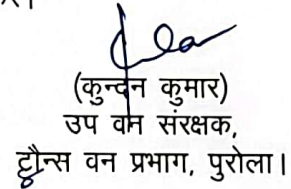 (कुन्दन कुमार)
उप वन संरक्षक,
टौन्स वन प्रभाग, पुरोला।